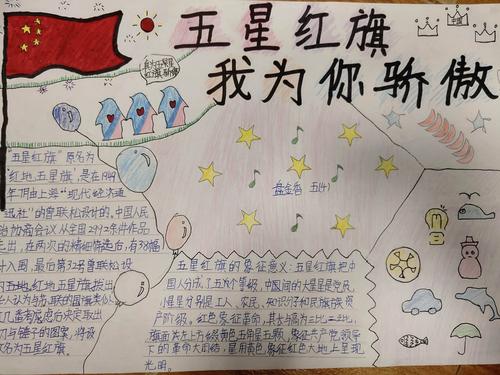 五星红旗
我为你骄傲
盘金香 五(4)
"五星红旗"原名为
"红地五星旗"是在1949
年7月由上海"现代经济通
讯社"的曾联松设计的,中国人民
治协商会议从全国2992条件作品
选出,在两次的精细筛选后,有38幅
件入围,最后第32号曾联松设
的五地红地五星旗
几番考虑后决定取出
刀与锤子的图案,将设
改名为五星红旗。
五星红旗的象征意义:五星红旗把中
国人分成了五个等级,中间的大星是党员
小星星分别是工人、农民、知识分和民族族资
产阶级。红色象征革命,其长与高为三比二
旗面左上方缀黄色五角星五颗,象征共产党领导
下的革命大团结,星用黄色象征红色大地上呈现
光明。